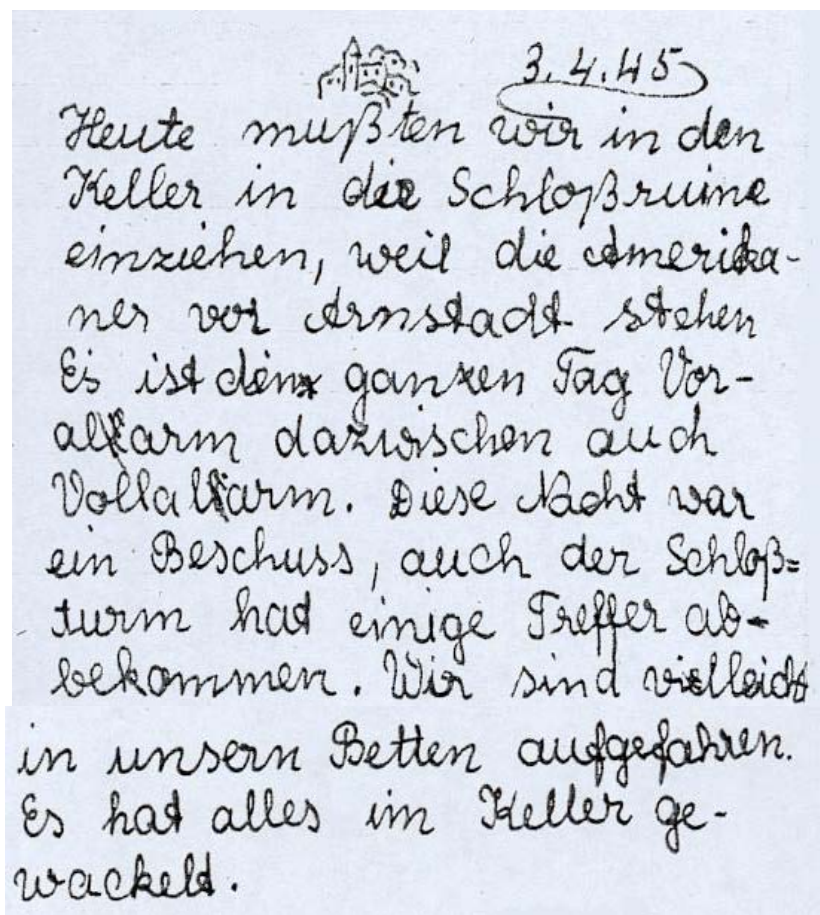 3.4.45
Heute mußten wir in den
Keller in die Schloßruine
einziehen, weil die Amerika-
ner vor Arnstadt stehen
Es ist den ganzen Tag Vor-
alarm dazwischen auch
Vollalarm. Diese Nacht war
ein Beschuss, auch der Schloß=
turm hat einige Treffer ab-
bekommen. Wir sind vielleicht
in unsern Betten aufgefahren.
Es hat alles im Keller ge-
wackelt.